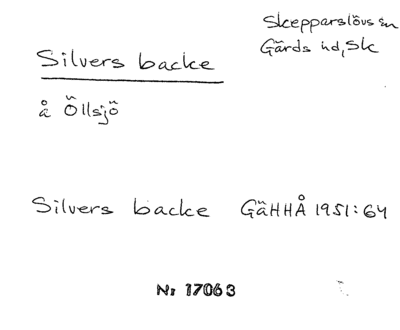 Skepparslövs sn
Gärds hd, Sk
Silvers backe
å Öllsjö
Silvers backe GäHHÅ 1951:64
Nr 17063